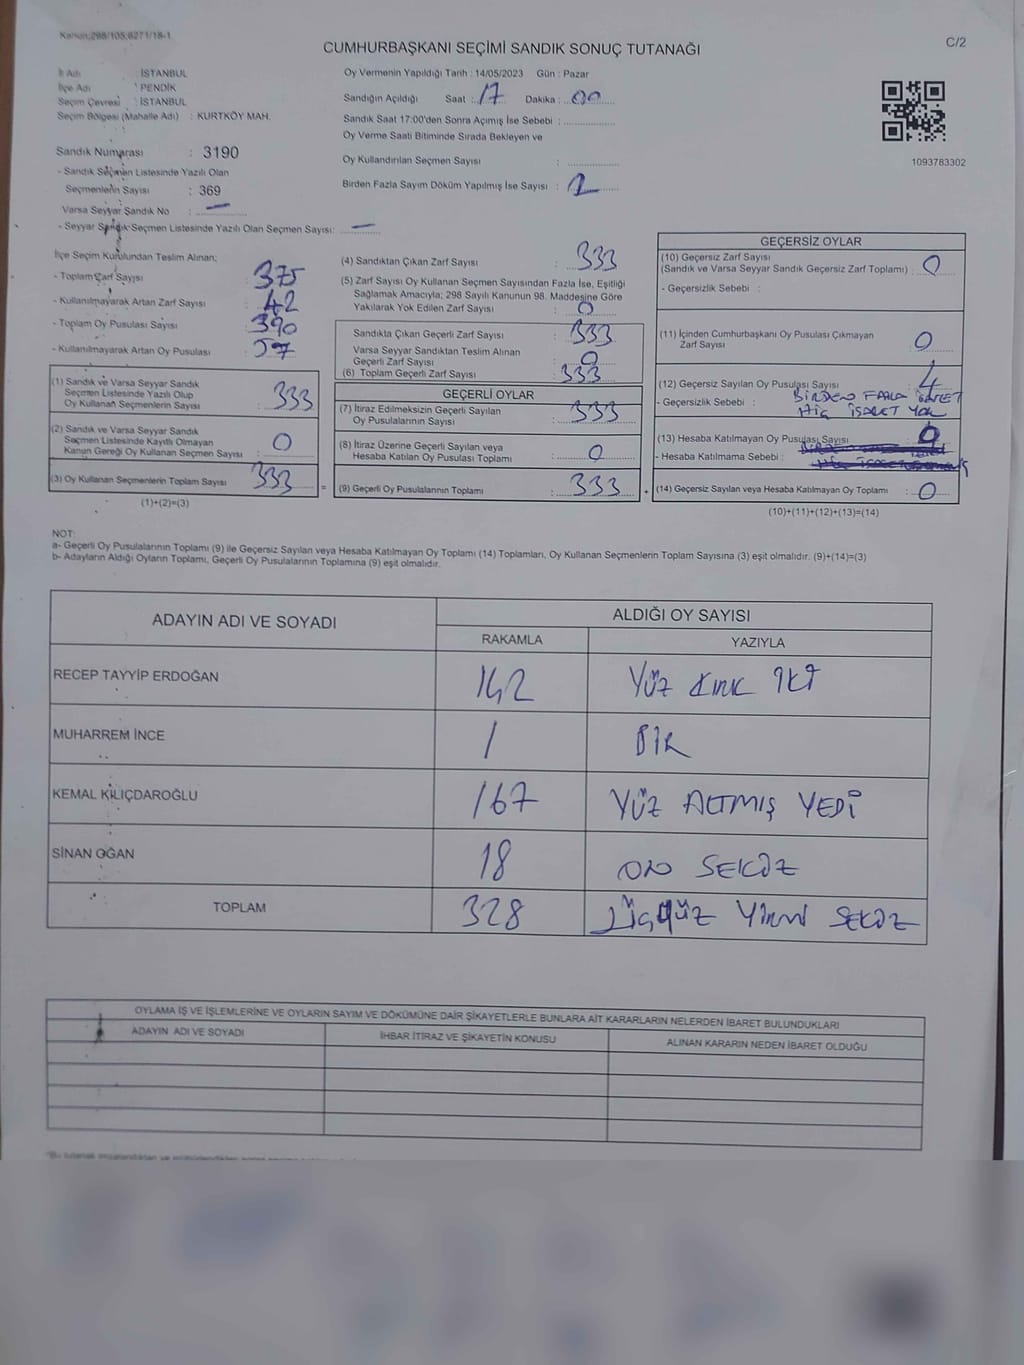 Kanun:298/105;6271/18-1
CUMHURBAŞKANI SEÇİMİ SANDIK SONUÇ TUTANAĞI
C/2
İl Adı : İSTANBUL
İlçe Adı : PENDİK
Seçim Çevresi : İSTANBUL
Seçim Bölgesi (Mahalle Adı) : KURTKÖY MAH.
Sandık Numarası : 3190
- Sandık Seçmen Listesinde Yazılı Olan
Seçmenlerin Sayısı : 369
Varsa Seyyar Sandık No : —
- Seyyar Sandık Seçmen Listesinde Yazılı Olan Seçmen Sayısı: —
Oy Vermenin Yapıldığı Tarih : 14/05/2023 Gün : Pazar
Sandığın Açıldığı Saat : 17 Dakika : 00
Sandık Saat 17:00'den Sonra Açımış İse Sebebi :
Oy Verme Saati Bitiminde Sırada Bekleyen ve
Oy Kullandırılan Seçmen Sayısı :
Birden Fazla Sayım Döküm Yapılmış İse Sayısı :
1093783302
İlçe Seçim Kurulundan Teslim Alınan;
- Toplam Zarf Sayısı : 375
- Kullanılmayarak Artan Zarf Sayısı : 42
- Toplam Oy Pusulası Sayısı : 390
- Kullanılmayarak Artan Oy Pusulası : 57
(1) Sandık ve Varsa Seyyar Sandık
Seçmen Listesinde Yazılı Olup
Oy Kullanan Seçmenlerin Sayısı : 333
(2) Sandık ve Varsa Seyyar Sandık
Seçmen Listesinde Kayıtlı Olmayan
Kanun Gereği Oy Kullanan Seçmen Sayısı : 0
(3) Oy Kullanan Seçmenlerin Toplam Sayısı : 333
(1)+(2)=(3)
=
(4) Sandıktan Çıkan Zarf Sayısı : 333
(5) Zarf Sayısı Oy Kullanan Seçmen Sayısından Fazla İse, Eşitliği
Sağlamak Amacıyla; 298 Sayılı Kanunun 98. Maddesine Göre
Yakılarak Yok Edilen Zarf Sayısı : 0
Sandıkta Çıkan Geçerli Zarf Sayısı : 333
Varsa Seyyar Sandıktan Teslim Alınan
Geçerli Zarf Sayısı : 0
(6) Toplam Geçerli Zarf Sayısı : 333
GEÇERLİ OYLAR
(7) İtiraz Edilmeksizin Geçerli Sayılan
Oy Pusulalarının Sayısı : 333
(8) İtiraz Üzerine Geçerli Sayılan veya
Hesaba Katılan Oy Pusulası Toplamı : 0
(9) Geçerli Oy Pusulalarının Toplamı : 333
+
GEÇERSİZ OYLAR
(10) Geçersiz Zarf Sayısı
(Sandık ve Varsa Seyyar Sandık Geçersiz Zarf Toplamı) : 0
- Geçersizlik Sebebi :
(11) İçinden Cumhurbaşkanı Oy Pusulası Çıkmayan
Zarf Sayısı : 0
(12) Geçersiz Sayılan Oy Pusulası Sayısı : 4
- Geçersizlik Sebebi : BİRDEN FAZLA İŞARET
HİÇ İŞARET YOK
(13) Hesaba Katılmayan Oy Pusulası Sayısı :
- Hesaba Katılmama Sebebi :
(14) Geçersiz Sayılan veya Hesaba Katılmayan Oy Toplamı : 0
(10)+(11)+(12)+(13)=(14)
NOT:
a- Geçerli Oy Pusulalarının Toplamı (9) ile Geçersiz Sayılan veya Hesaba Katılmayan Oy Toplamı (14) Toplamları, Oy Kullanan Seçmenlerin Toplam Sayısına (3) eşit olmalıdır. (9)+(14)=(3)
b- Adayların Aldığı Oyların Toplamı, Geçerli Oy Pusulalarının Toplamına (9) eşit olmalıdır.
ADAYIN ADI VE SOYADI
ALDIĞI OY SAYISI
RAKAMLA YAZIYLA
RECEP TAYYİP ERDOĞAN 142 YÜZ KIRK İKİ
MUHARREM İNCE 1 BİR
KEMAL KILIÇDAROĞLU 167 YÜZ ALTMIŞ YEDİ
SİNAN OĞAN 18 ON SEKİZ
TOPLAM 328 ÜÇYÜZ YİRMİ SEKİZ
OYLAMA İŞ VE İŞLEMLERİNE VE OYLARIN SAYIM VE DÖKÜMÜNE DAİR ŞİKAYETLERLE BUNLARA AİT KARARLARIN NELERDEN İBARET BULUNDUKLARI
ADAYIN ADI VE SOYADI İHBAR İTİRAZ VE ŞİKAYETİN KONUSU ALINAN KARARIN NEDEN İBARET OLDUĞU